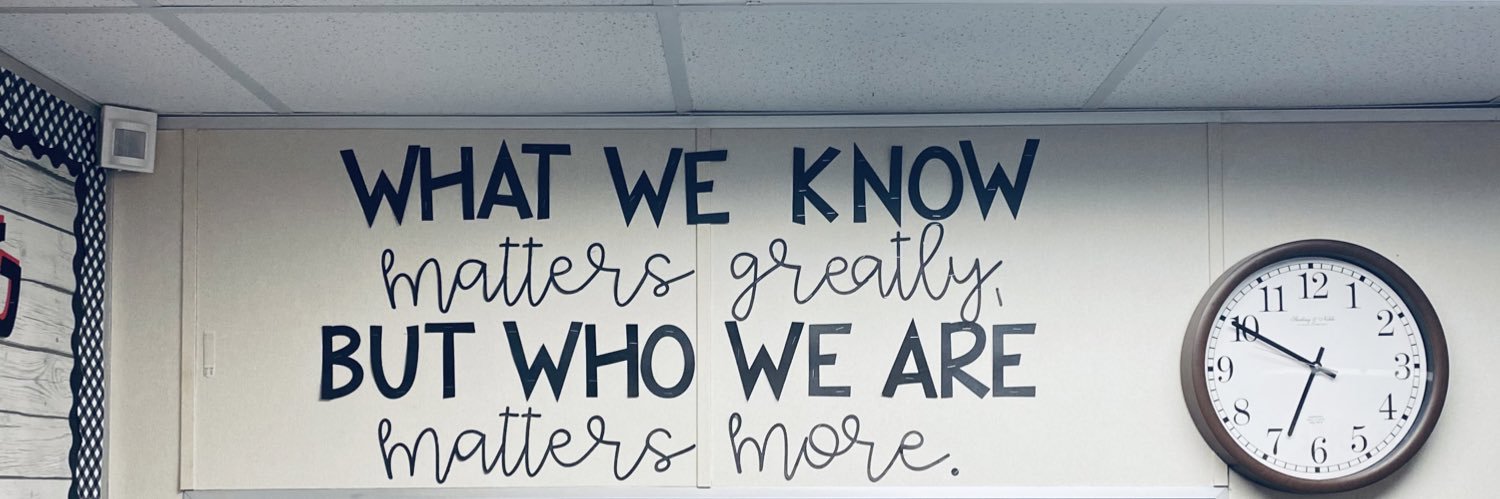 WHAT WE KNOW
matters greatly,
BUT WHO WE ARE
matters more.
11 12 1
10 2
Sterling & Noble
9 3
8 4
7 6 5